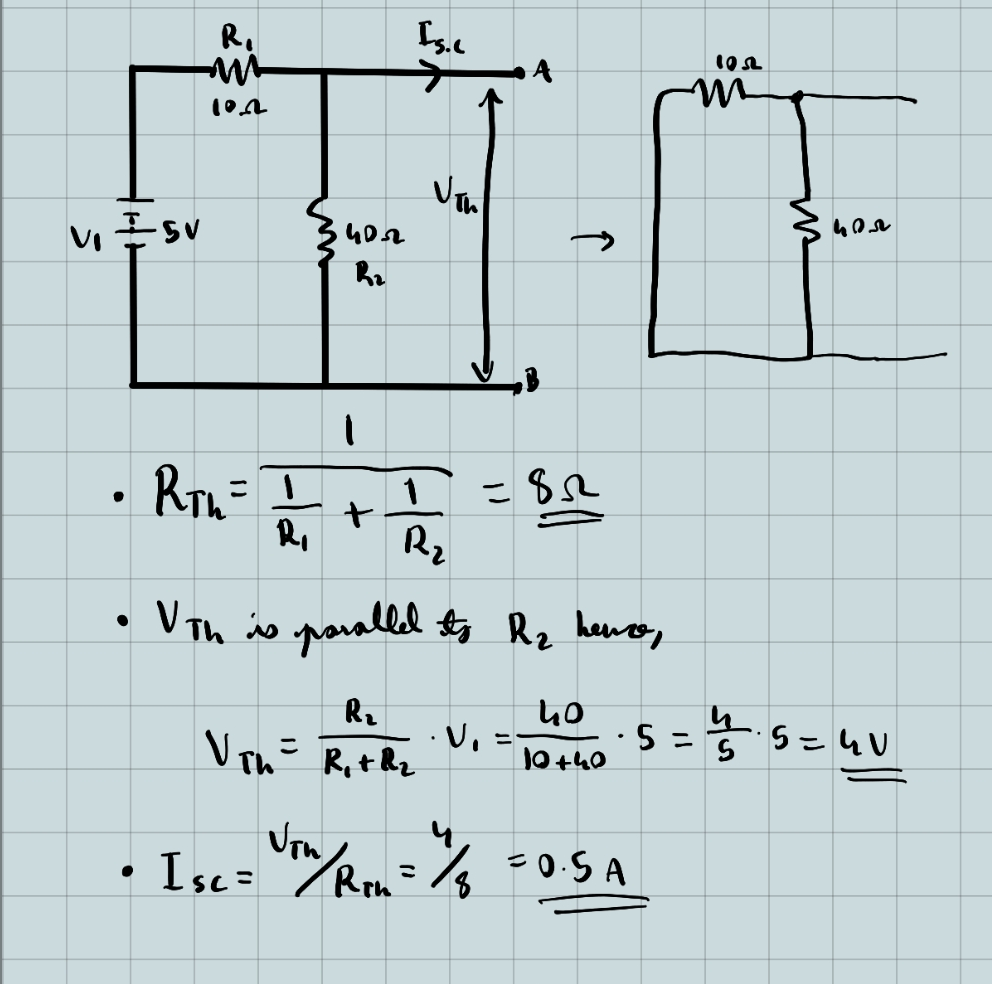 R₁ I s.c A 10Ω
10Ω
V Th
V₁ 5V 40Ω → 40Ω
R₂
B
• R Th = 1 / (1/R₁ + 1/R₂) = 8Ω
• V Th is parallel to R₂ hence,
V Th = R₂/(R₁+R₂) · V₁ = 40/(10+40) · 5 = 4/5 · 5 = 4V
• I sc = V Th/R Th = 4/8 = 0.5 A